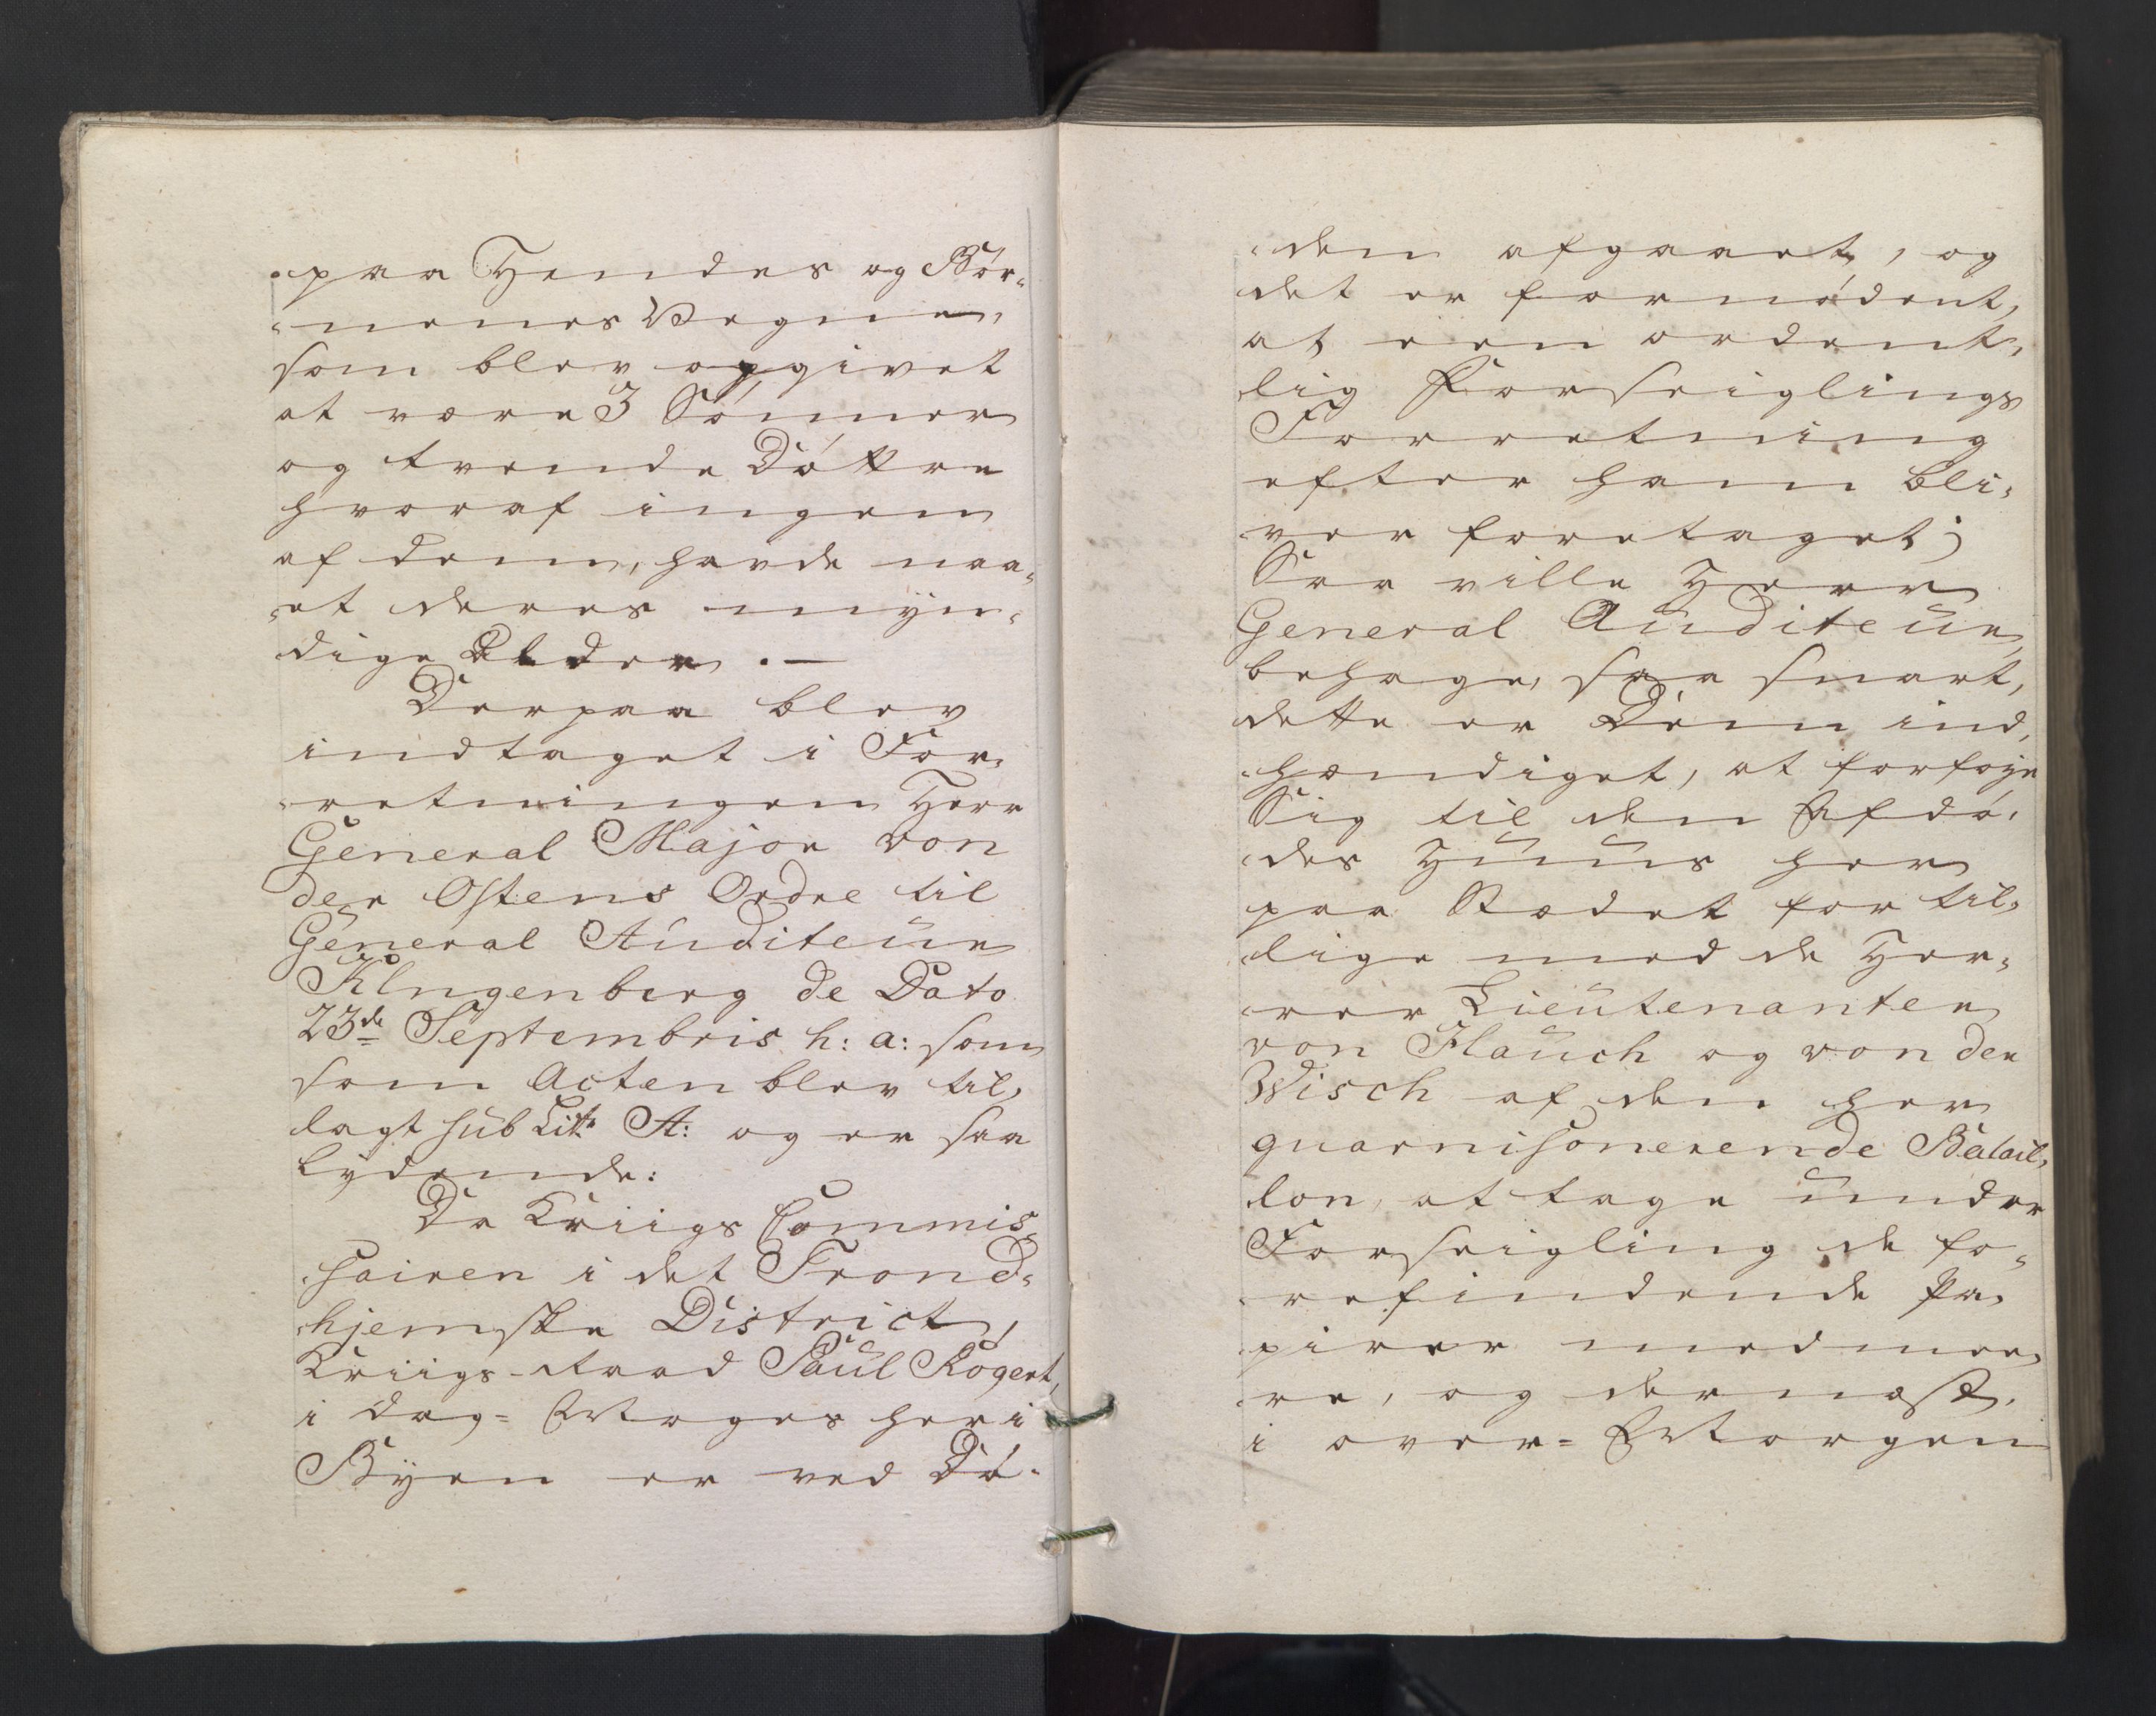 paa Hendes og Bør-
nenes Vegne,
som blev opgivet
at være 3 Sønner
og tvende Døttre
hvoraf ingen
af dem, havde naa-
et deres myn-
dige Alder. —
Derpaa blev
indtaget i For-
retningen Herr
General Major von
der Ostens Ordre til
General Auditeur
Klngenberg de Dato
23de Septembris h: a: som
som Acten blev til-
lagt sub Litr A: og er saa
lydende:
Da Kriigs Commis-
sairen i det Trond-
hjemske District,
Kriigs-Raad Paul Rogert,
i Dag- Morges her i
Byen er ved Dø-
den afgaaet, og
det er fornødent,
at een ordent-
lig Forseiglings
Forretning
efter ham bli-
ver foretaget;
Saa ville Herr
General Auditeur
behage, saa snart,
dette er Dem ind-
hændiget, at forføye
Sig til den Afdø-
des Huus her
paa Stædet for til-
lige med de Her-
rer Lieutenanter
von Hauch og von der
Wisch af den her
guarnisonerende Batail-
lon, at tage under
Forseigling de fo-
refindende Pa-
pirer med mee-
re, og dernæst,
i over- Morgen